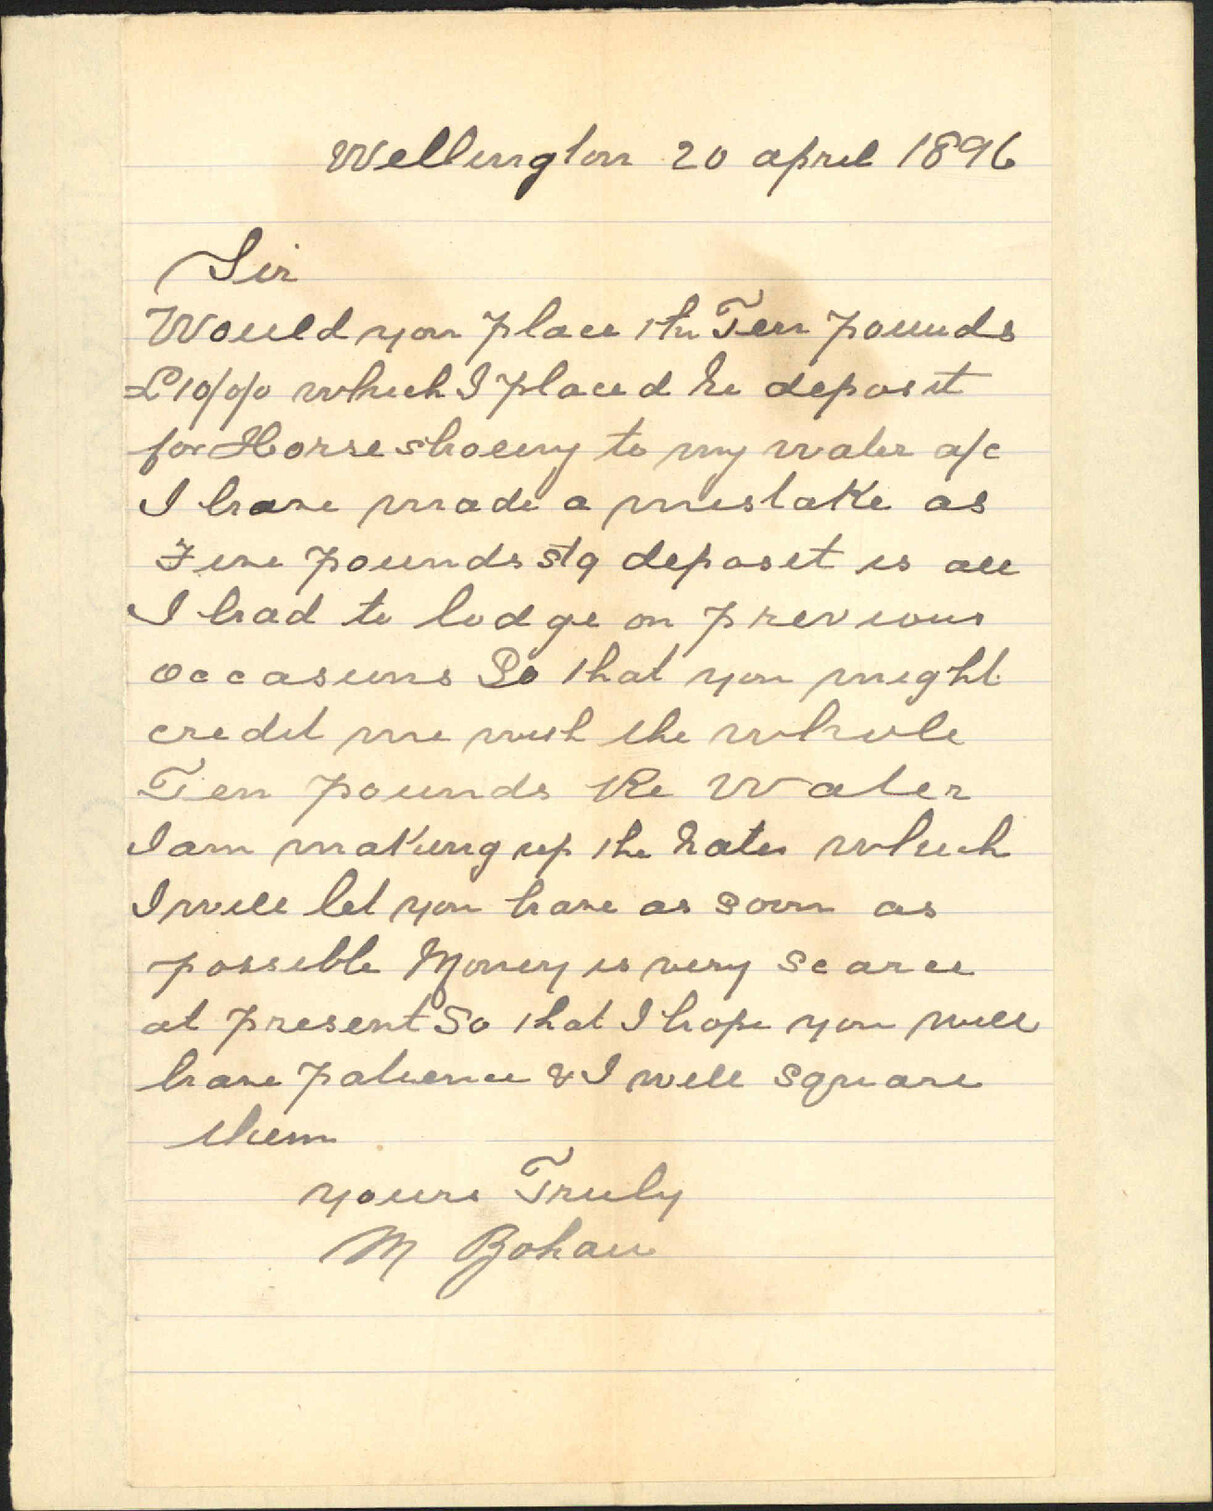 Wellington 20 april 1896
Sir
Would you place the Ten pounds
£10/0/0 which I placed Re deposit
for Horse shoeing to my water a/c
I have made a mistake as
Five pounds stg deposit is all
I had to lodge on previous
occasions So that you might
credit me with the whole
Ten pounds Re Water
I am making up the Rates which
I will let you have as soon as
possible Money is very scarce
at present So that I hope you will
have patience & I will square
them
yours Truly
M Bohan